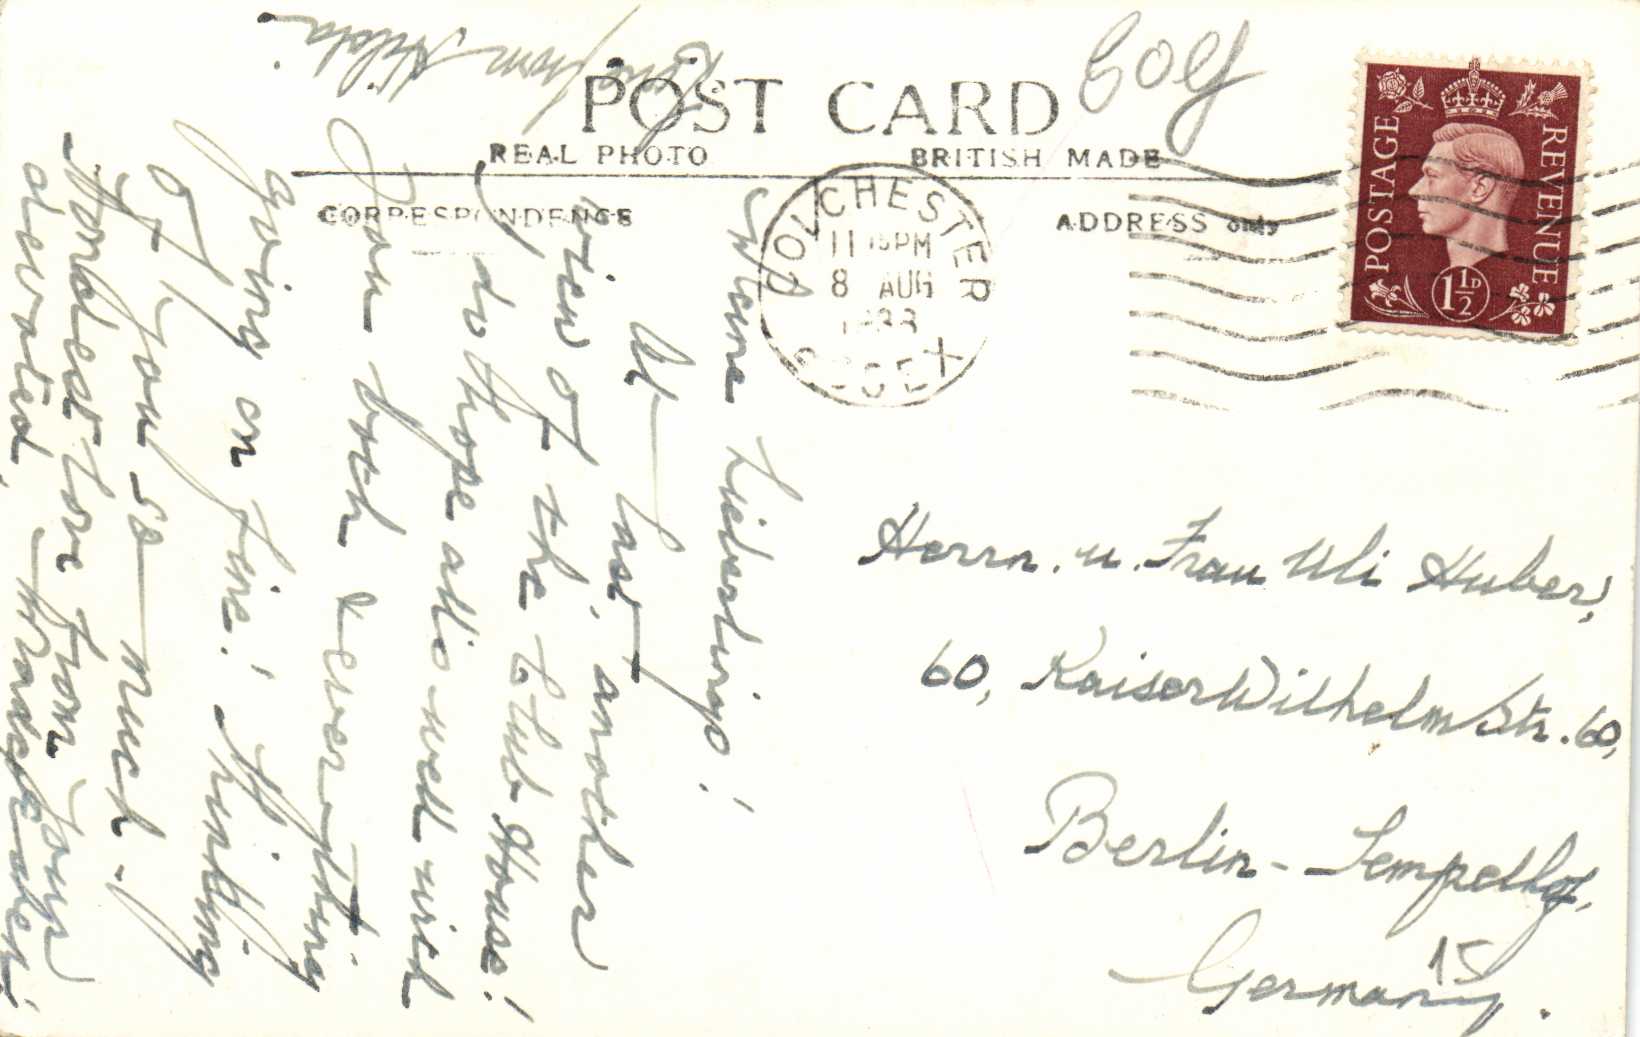 POST CARD
REAL PHOTO
BRITISH MADE
CORRESPONDENCE
ADDRESS only
POSTAGE
REVENUE
1½D
COLCHESTER
11 15 PM
8 AUG
ESSEX
Meine Lieberlings!
At last, another
view of the Club House!
I do hope all is well with
you both & everything
going on fine! Thinking
of you so much!
Fondest love from your
devoted
from Hilda.
Herrn. u. Frau Uli Huber,
60, Kaiser Wilhelm Str. 60,
Berlin - Tempelhof,
15
Germany.